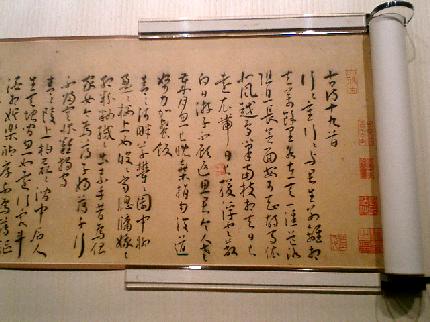 古詩十九首
行行重行行與君生別離相
去萬餘里各在天一涯道路
阻且長會面安可知胡馬依
北風越鳥巢南枝相去日已
遠衣帶日已緩浮雲蔽
白日遊子不顧返思君令人老
歲月忽已晚棄捐勿復道
努力加餐飯
青青河畔草鬱鬱園中柳
盈盈樓上女皎皎當窗牖娥娥
紅粉粧纖纖出素手昔為倡
家女今為蕩子婦蕩子行
不歸空床難獨守
青青陵上柏磊磊澗中石人
生天地間忽如遠行客斗
酒相娛樂聊厚不為薄